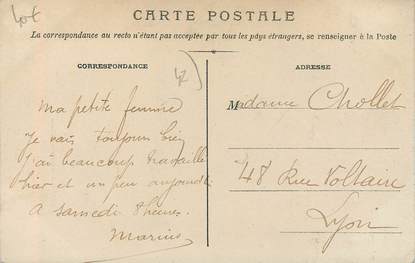 Lot
CARTE POSTALE
La correspondance au recto n'étant pas acceptée par tous les pays étrangers, se renseigner à la Poste
CORRESPONDANCE
Ma petite femme
Je vais toujours bien
J'ai beaucoup travaillé
hier et un peu aujourd'hui
A samedi 8 heures.
Marius
ADRESSE
Madame Chollet
48 Rue Voltaire
Lyon